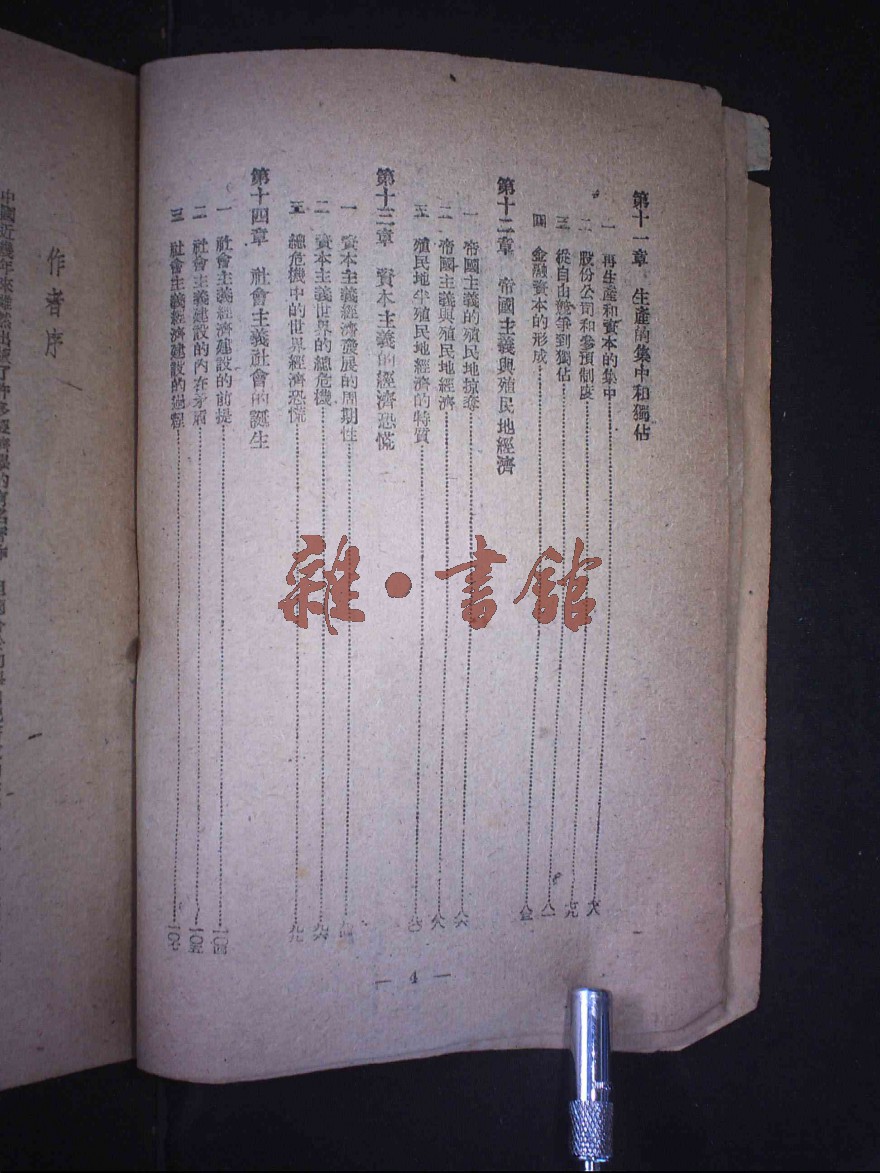 第十一章 生產的集中和獨佔
一 再生產和資本的集中
二 股份公司和參預制度
三 從自由競爭到獨佔 八一
四 金融資本的形成
第十二章 帝國主義與殖民地經濟
一 帝國主義的殖民地掠奪 八六
二 帝國主義與殖民地經濟
三 殖民地半殖民地經濟的特質
第十三章 資本主義的經濟恐慌
一 資本主義經濟發展的周期性
二 資本主義世界的總危機 九六
三 總危機中的世界經濟恐慌 九九
第十四章 社會主義社會的誕生
一 社會主義經濟建設的前提 一〇四
二 社會主義建設的內在矛盾 一〇五
三 社會主義經濟建設的過程 一〇七
— 4 —
作者序
中國近幾年來雖然出版了許多經濟學的
雜·書館